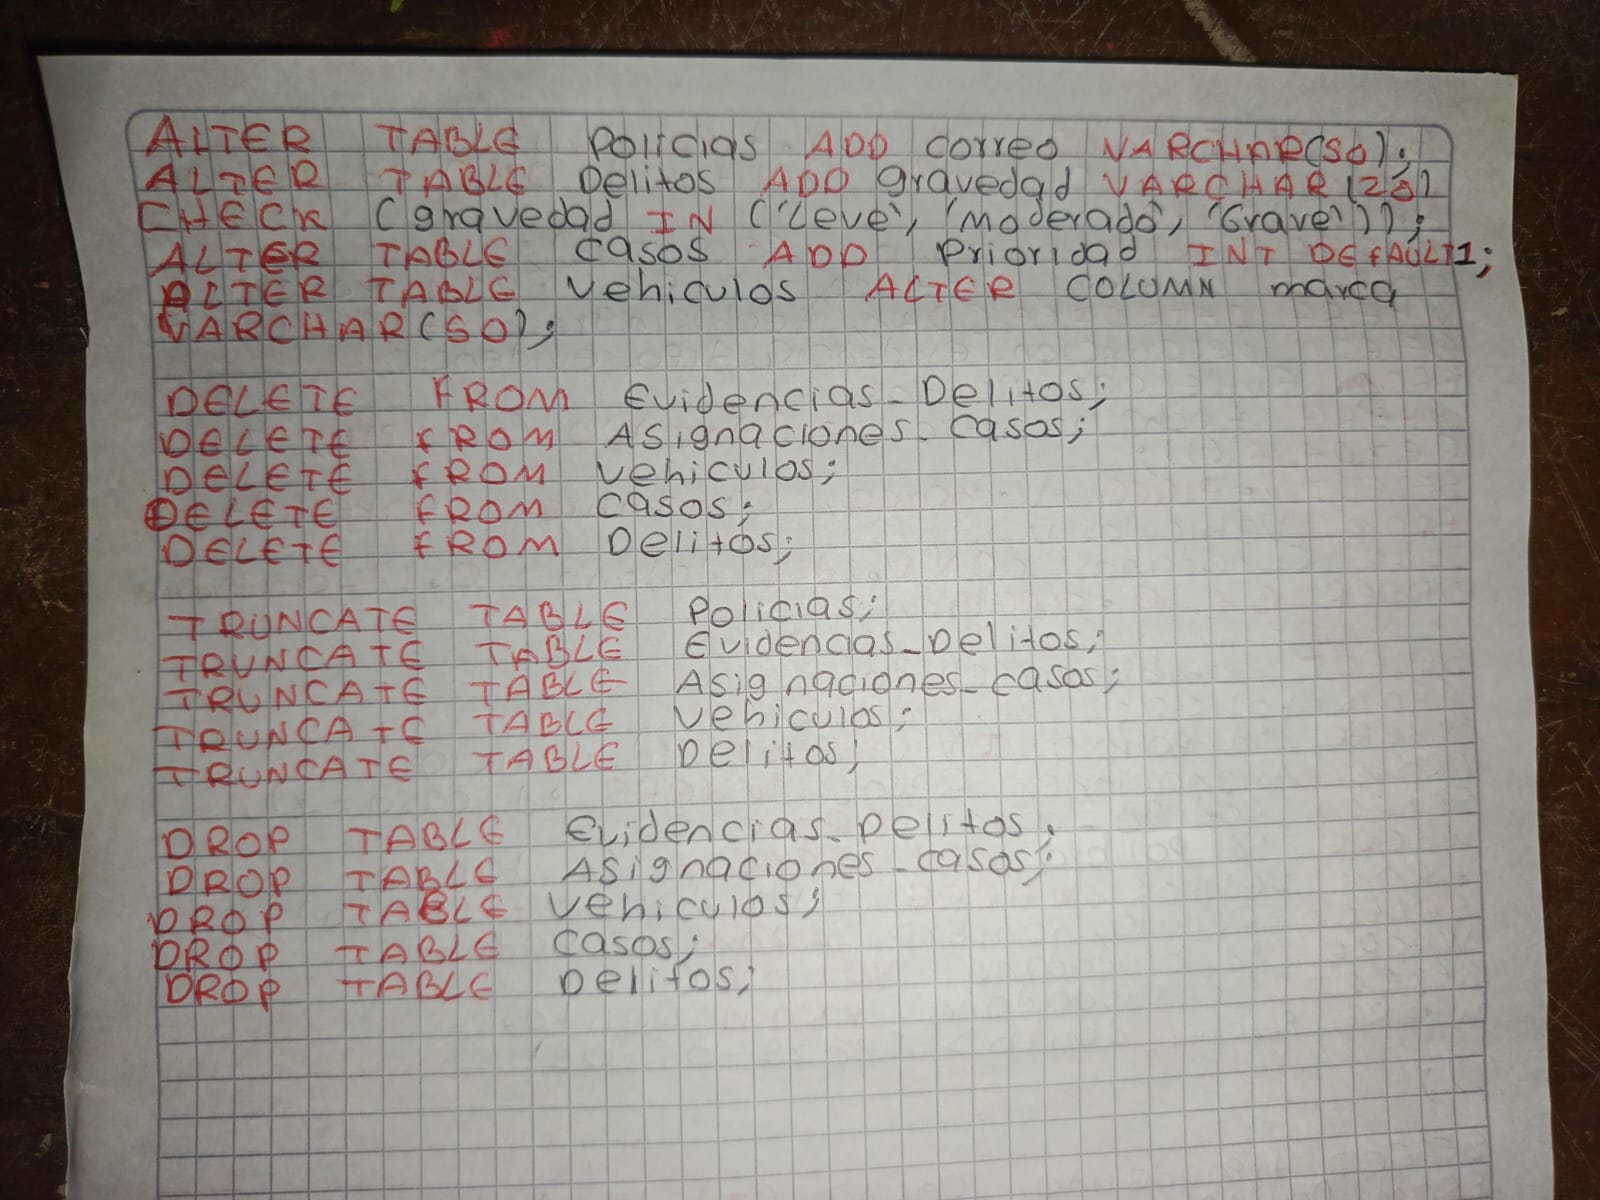 ALTER TABLE Policias ADD correo VARCHAR(50);
ALTER TABLE Delitos ADD gravedad VARCHAR(20)
CHECK (gravedad IN ('Leve', 'Moderado', 'Grave'));
ALTER TABLE Casos ADD Prioridad INT DEFAULT 1;
ALTER TABLE Vehiculos ALTER COLUMN marca
VARCHAR(50);
DELETE FROM Evidencias_Delitos;
DELETE FROM Asignaciones_Casos;
DELETE FROM Vehiculos;
DELETE FROM Casos;
DELETE FROM Delitos;
TRUNCATE TABLE Policias;
TRUNCATE TABLE Evidencias_Delitos;
TRUNCATE TABLE Asignaciones_casos;
TRUNCATE TABLE Vehiculos;
TRUNCATE TABLE Delitos;
DROP TABLE Evidencias_Delitos;
DROP TABLE Asignaciones_casos;
DROP TABLE Vehiculos;
DROP TABLE Casos;
DROP TABLE Delitos;